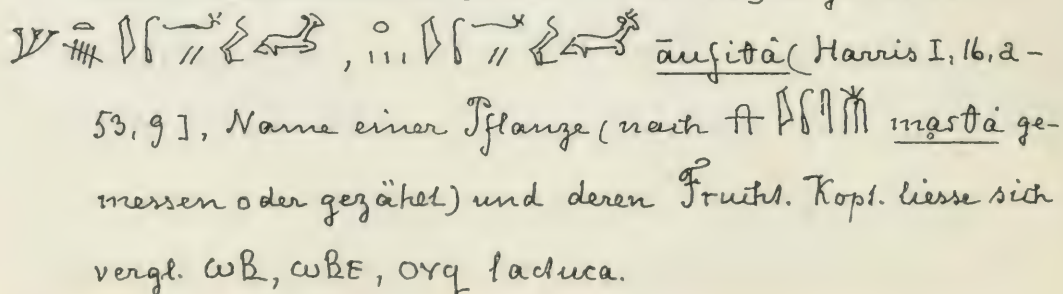 āufitâ (Harris I, 16, a-
53, 9], Name einer Pflanze (nach mastȧ ge-
messen oder gezählt) und deren Frucht. Kopt. liesse sich
vergl. ⲱⲃ, ⲱⲃⲉ, ⲟⲩϥ lactuca.